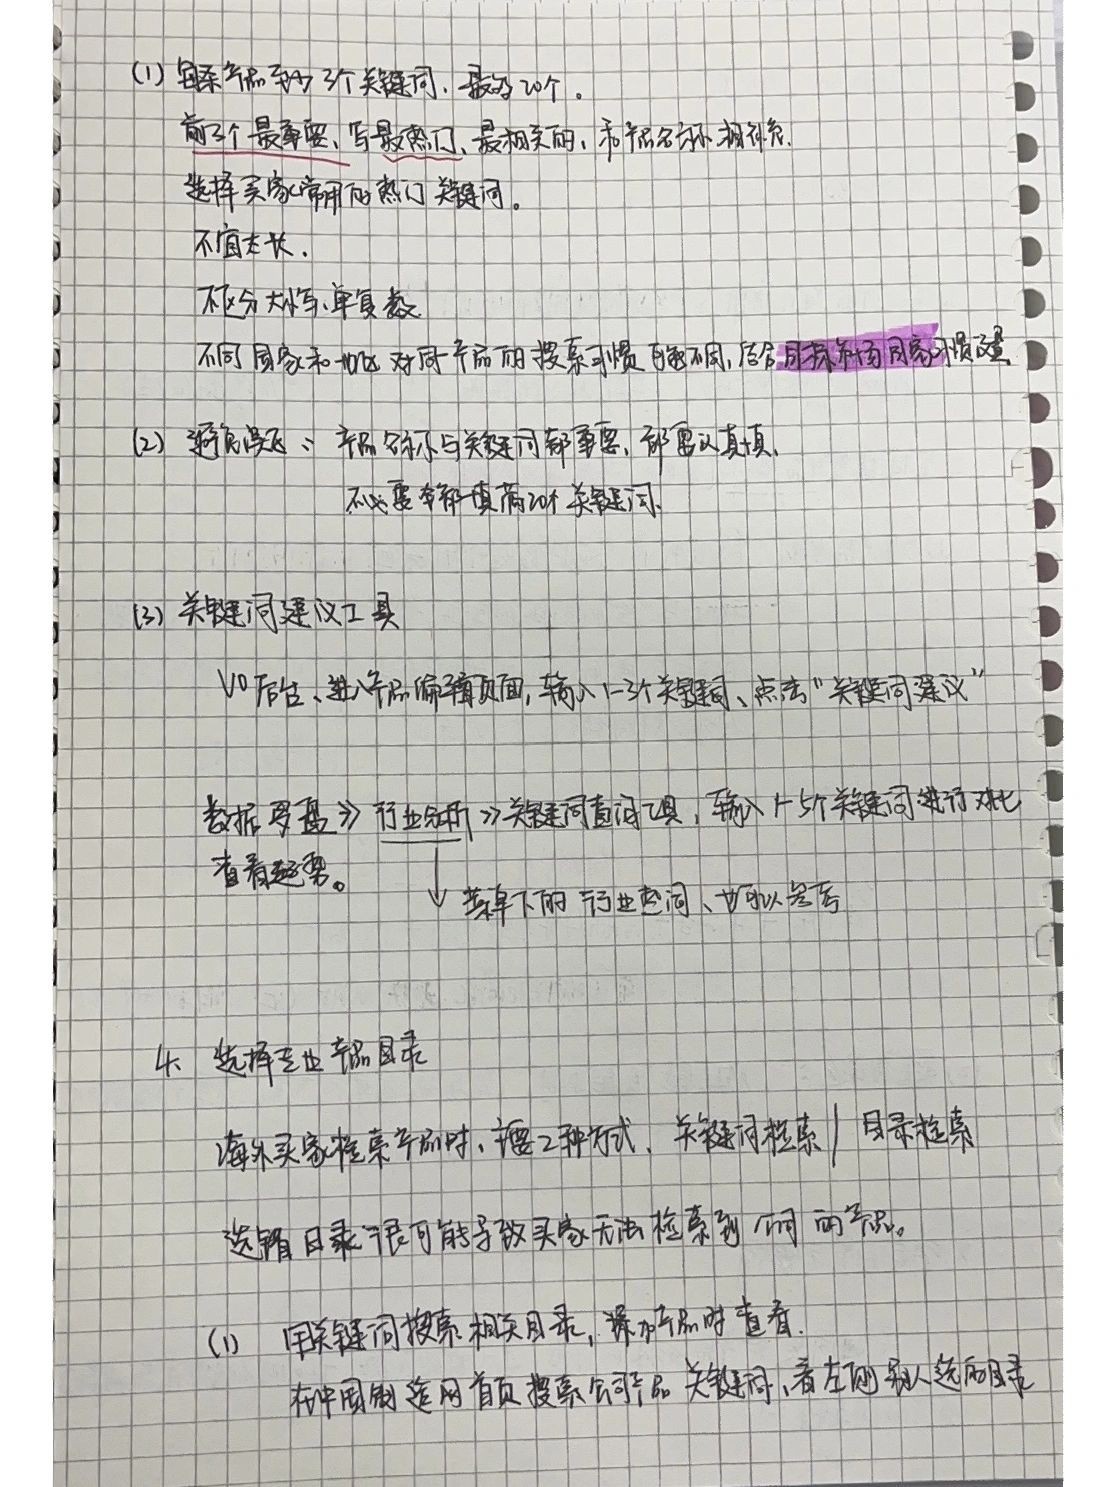 (1) 每条产品至少3个关键词,最多20个。
前3个最重要、写最热门、最相关的,和产品名称相补充.
选择买家常用的热门关键词。
不宜太长.
不区分大小写、单复数
不同国家和地区对同产品的搜索习惯可能不同,结合目标市场国家习惯设置
(2) 避免误区: 产品名称与关键词都重要,都要认真填.
不必要全部填满20个关键词.
(3) 关键词建议工具
VO后台、进入产品编辑页面,输入1-3个关键词、点击“关键词建议”
数据罗盘》行业分析》关键词查询工具,输入1-5个关键词进行对比
查看趋势。
↓ 菜单下的行业热词、也可以参考
4、选择专业产品目录
海外买家检索产品时、主要2种方式、关键词检索/目录检索
选错目录很可能导致买家无法检索到公司的产品。
(1) 用关键词搜索相关目录,添加产品时查看.
在中国制造网首页搜索公司产品关键词,看左侧别人选的目录